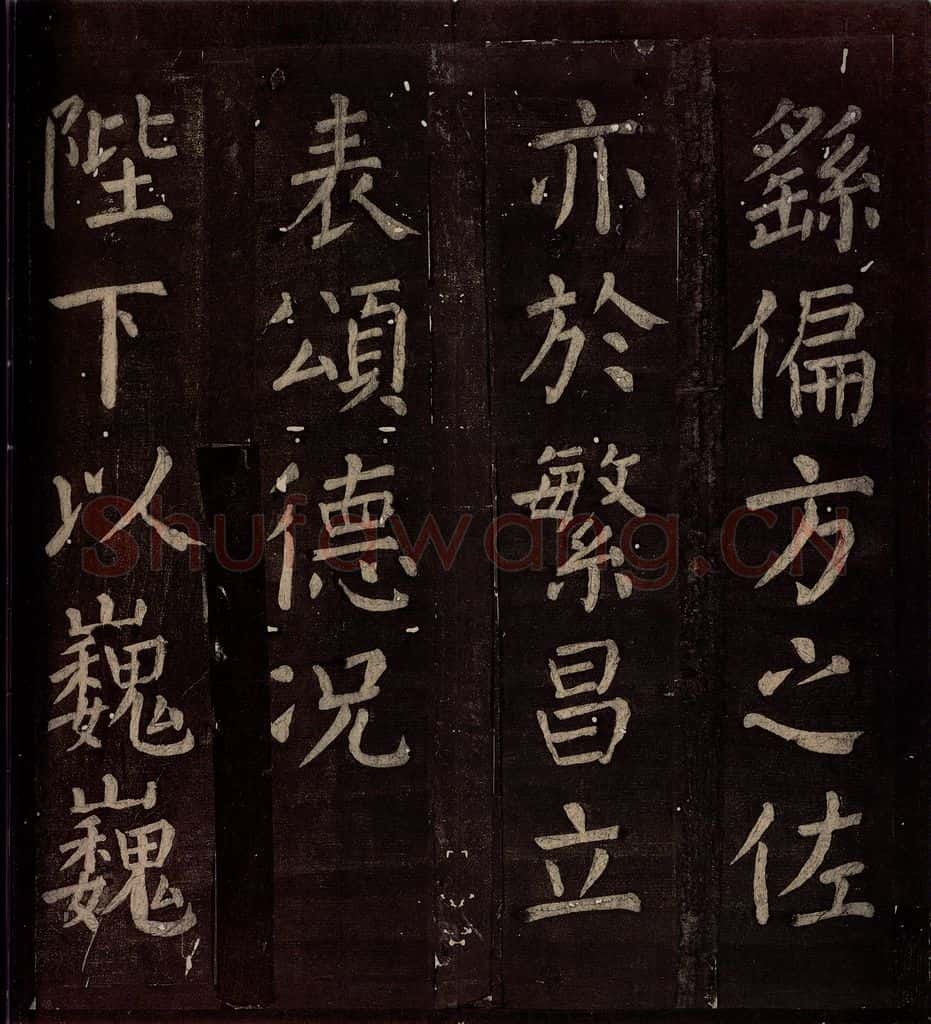 繇偏方之佐
亦於繁昌立
表頌德况
陛下以巍巍
Shufawang.CN